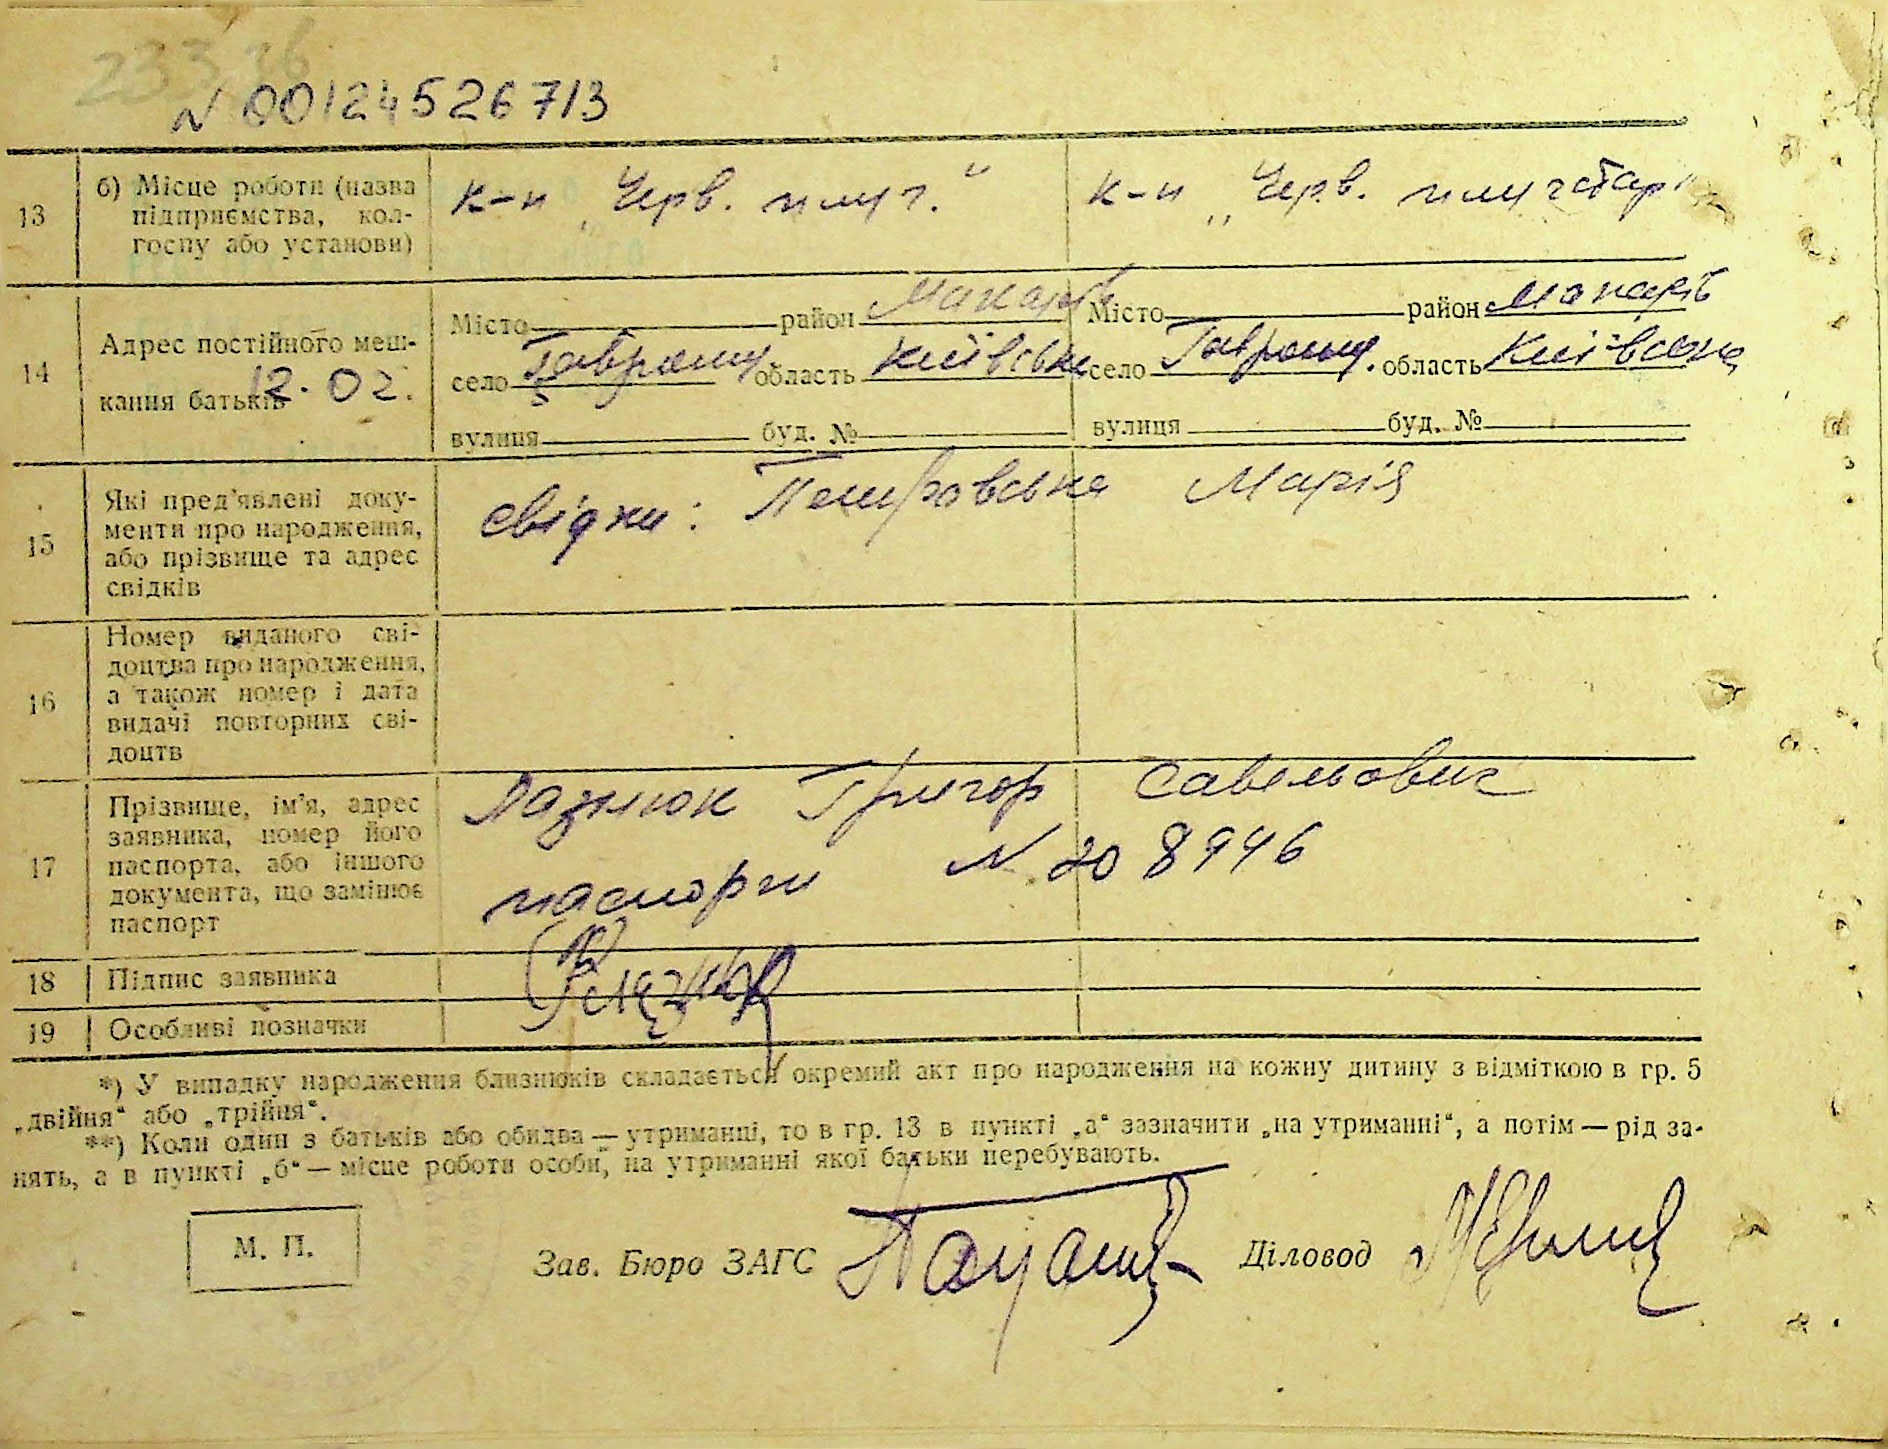 23376
N 00124526713
13 б) Місце роботи (назва підприємства, кол-
госпу або установи)
к-п „Черв. плуг." к-п „Черв. плугатар"
14 Адрес постійного меш-
кання батьків 12.02.
Місто район Макарів Місто район Макарів
село Гавронщ область Київська село Гавронщ. область Київська
вулиця буд. № вулиця буд. №
15 Які пред'явлені доку-
менти про народження,
або прізвище та адрес
свідків
свідки: Петровська Марія
16 Номер виданого сві-
доцтва про народження,
а також номер і дата
видачі повторних сві-
доцтв
17 Прізвище, ім'я, адрес
заявника, номер його
паспорта, або іншого
документа, що замінює
паспорт
Лазнюк Григор Савельович
паспорт N 208946
18 Підпис заявника
19 Особливі позначки
*) У випадку народження близнюків складається окремий акт про народження на кожну дитину з відміткою в гр. 5
„двійня" або „трійня".
**) Коли один з батьків або обидва — утриманці, то в гр. 13 в пункті „а" зазначити „на утриманні", а потім — рід за-
нять, а в пункті „б" — місце роботи особи, на утриманні якої батьки перебувають.
М. П.
Зав. Бюро ЗАГС Діловод